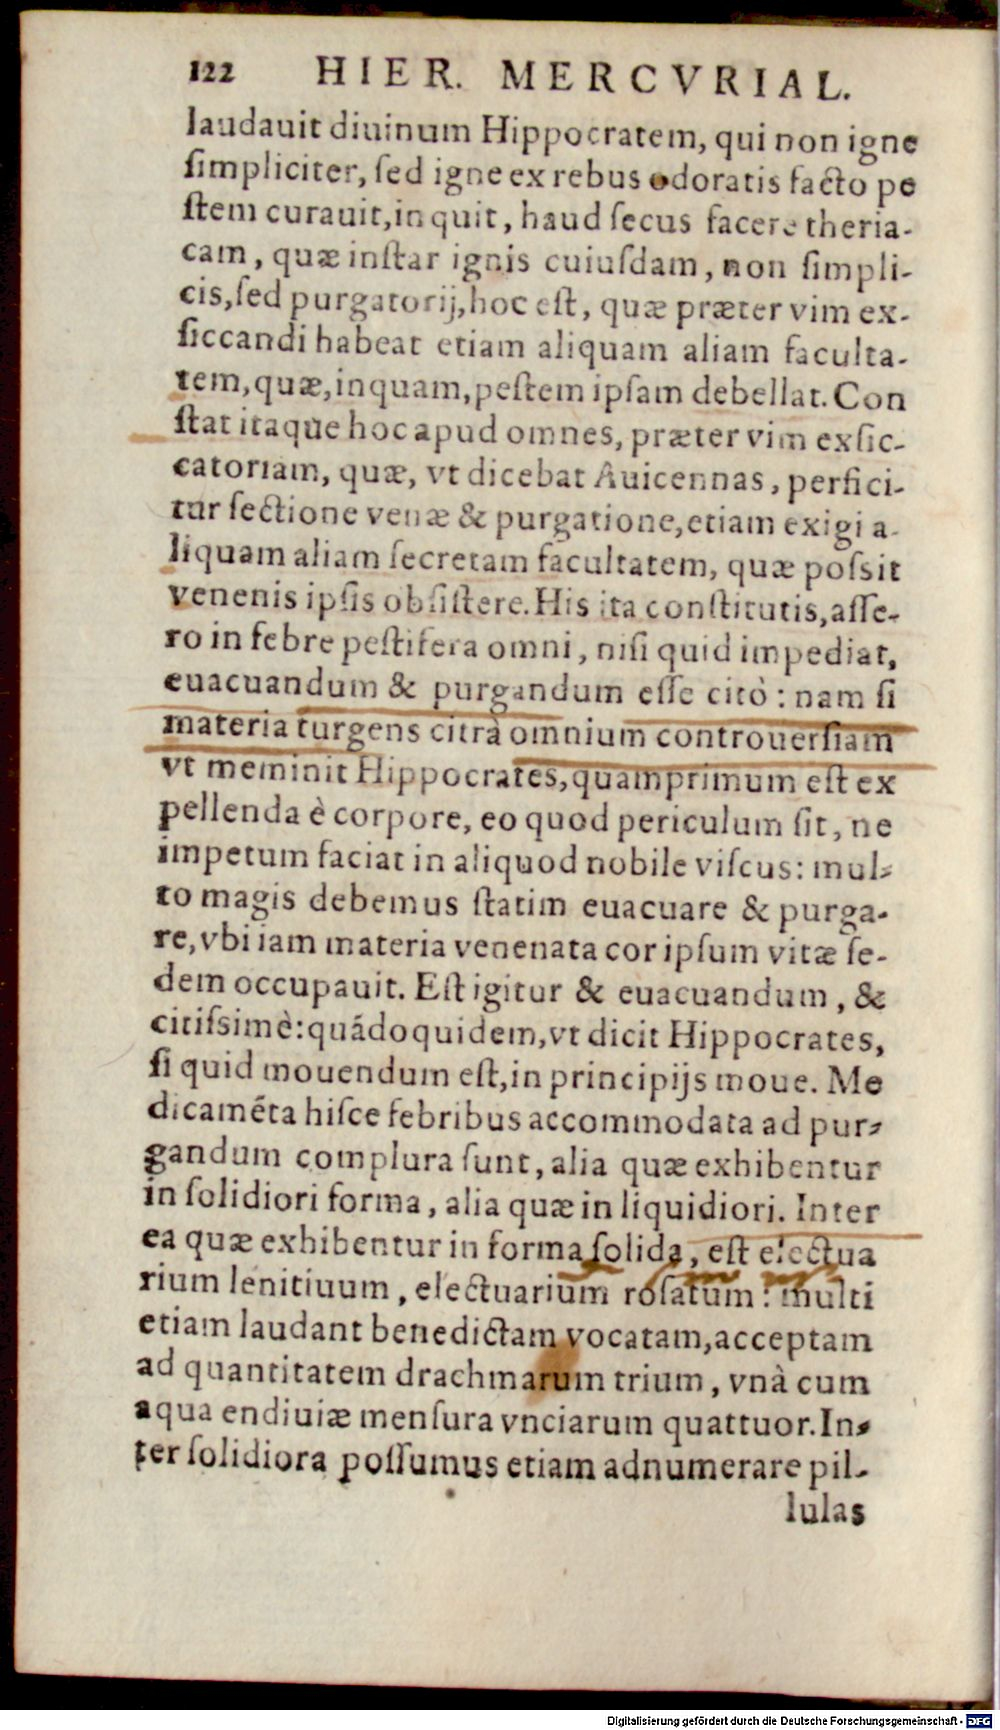 122 HIER. MERCVRIAL.
laudauit diuinum Hippocratem, qui non igne
ſimpliciter, ſed igne ex rebus odoratis facto pe
ſtem curauit, inquit, haud ſecus facere theria-
cam, quæ inſtar ignis cuiuſdam, non ſimpli-
cis, ſed purgatorij, hoc eſt, quæ præter vim ex-
ſiccandi habeat etiam aliquam aliam faculta-
tem, quæ, inquam, peſtem ipſam debellat. Con
ſtat itaque hoc apud omnes, præter vim exſic-
catoriam, quæ, vt dicebat Auicennas, perfici-
tur ſectione venæ & purgatione, etiam exigi a-
liquam aliam ſecretam facultatem, quæ poſsit
venenis ipſis obſiſtere. His ita conſtitutis, aſſe-
ro in febre peſtifera omni, niſi quid impediat,
euacuandum & purgandum eſſe citò: nam ſi
materia turgens citrà omnium controuerſiam
vt meminit Hippocrates, quamprimum eſt ex
pellenda è corpore, eo quod periculum ſit, ne
impetum faciat in aliquod nobile viſcus: mul-
to magis debemus ſtatim euacuare & purga-
re, vbi iam materia venenata cor ipſum vitæ ſe-
dem occupauit. Eſt igitur & euacuandum, &
citiſsimè: quádoquidem, vt dicit Hippocrates,
ſi quid mouendum eſt, in principijs moue. Me
dicaméta hiſce febribus accommodata ad pur-
gandum complura ſunt, alia quæ exhibentur
in ſolidiori forma, alia quæ in liquidiori. Inter
ea quæ exhibentur in forma ſolida, eſt electua
rium lenitiuum, electuarium roſatum: multi
etiam laudant benedictam vocatam, acceptam
ad quantitatem drachmarum trium, vnà cum
aqua endiuiæ menſura vnciarum quattuor. In-
ter ſolidiora poſſumus etiam adnumerare pil-
lulas
Digitalisierung gefördert durch die Deutsche Forschungsgemeinschaft - DFG